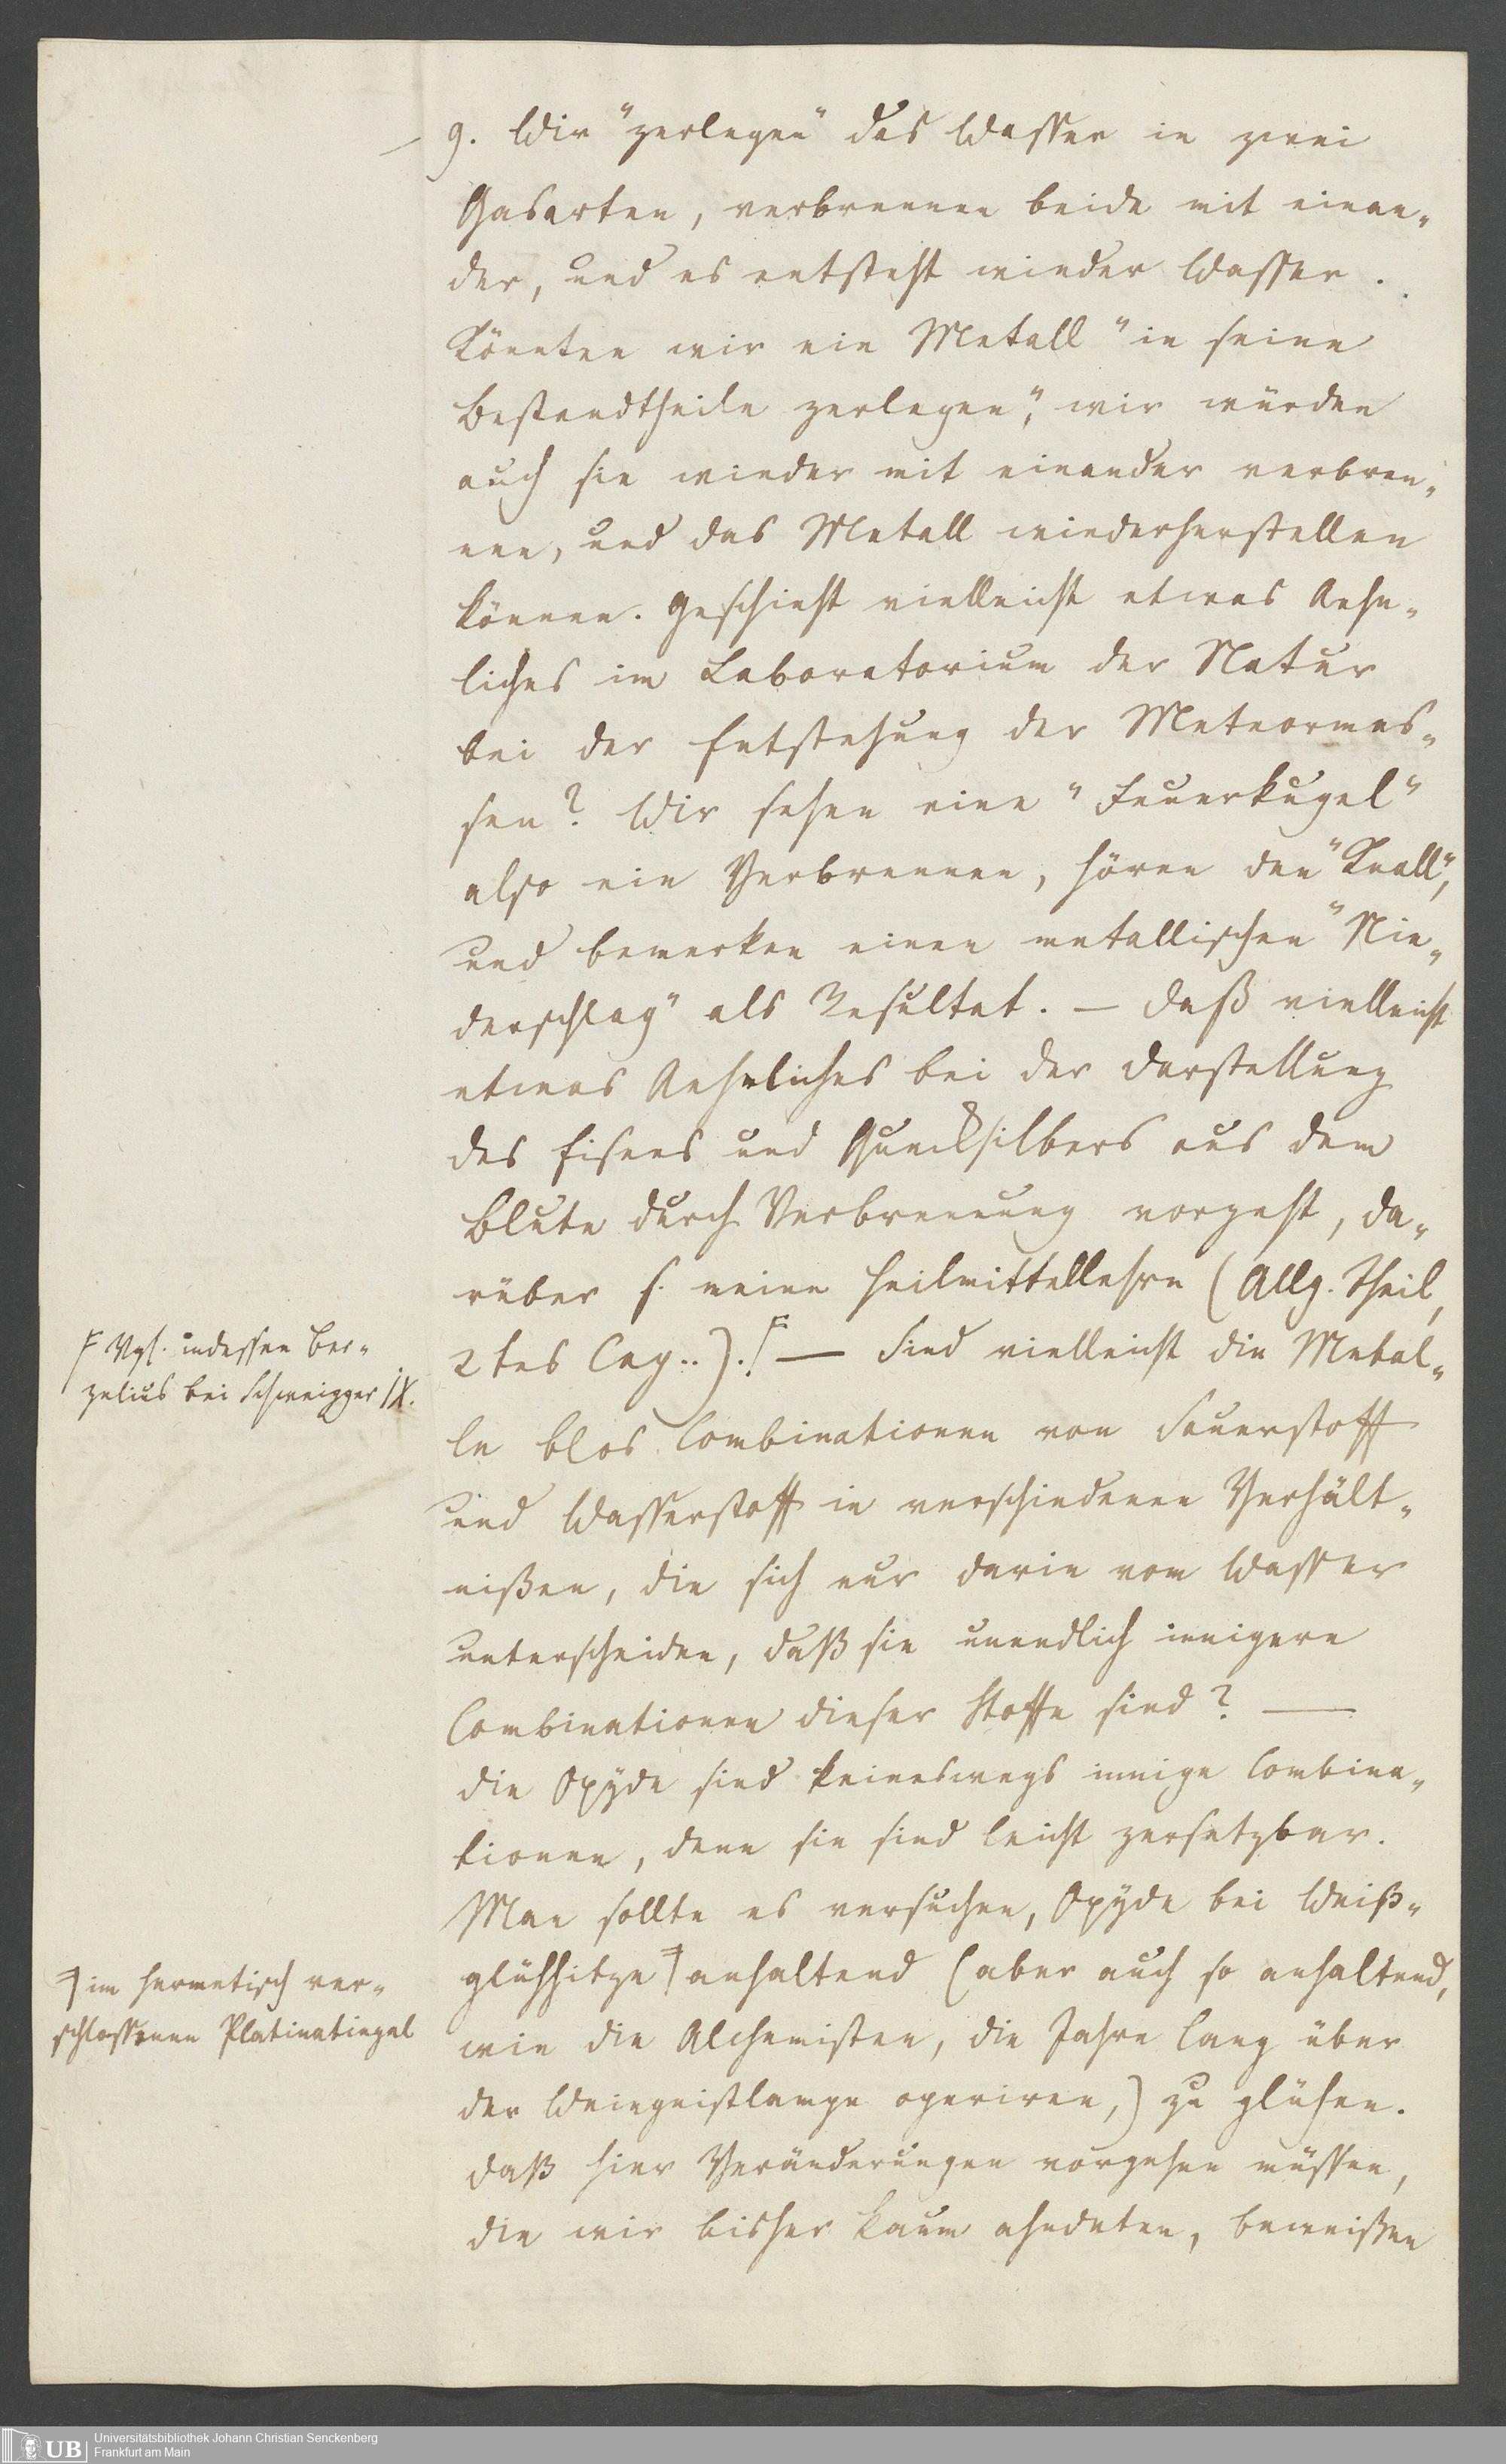 9. Wir "zerlegen" das Wasser in zwei
Gasarten, verbrennen beide mit einan-
der, und es entsteht wieder Wasser.
Könnten wir ein Metall "in seine
Bestandtheile zerlegen", wir würden
auch sie wieder mit einander verbren-
nen, und das Metall wiederherstellen
können. Geschieht vielleicht etwas Aehn-
liches im Laboratorium der Natur
bei der Entstehung der Meteormas-
sen? Wir sehen eine "Feuerkugel"
also ein Verbrennen, hören den "Knall",
und bemerken einen metallischen "Nie-
derschlag" als Resultat. — Daß vielleicht
etwas Aehnliches bei der Darstellung
des Eisens und Quecksilbers aus dem
Blute durch Verbrennung vorgeht, da-
rüber s. meine Heilmittellehre (Allg. Theil,
2tes Cap..).F — Sind vielleicht die Metal-
le blos Combinationen von Sauerstoff
und Wasserstoff in verschiedenen Verhält-
nißen, die sich nur darin vom Wasser
unterscheiden, daß sie unendlich innigere
Combinationen dieser Stoffe sind? —
Die Oxyde sind keineswegs innige Combina-
tionen, denn sie sind leicht zersetzbar.
Man sollte es versuchen, Oxyde bei Weiß-
glühhitze F anhaltend (aber auch so anhaltend,
wie die Alchemisten, die Jahre lang über
der Weingeistlampe operiren,) zu glühen.
Daß hier Veränderungen vorgehen müssen,
die wir bisher kaum ahndeten, beweißen
F Vgl. indessen Ber-
zelius bei Schweigger IX.
F im hermetisch ver-
schlossenen Platinatiegel
Universitätsbibliothek Johann Christian Senckenberg
Frankfurt am Main
UB